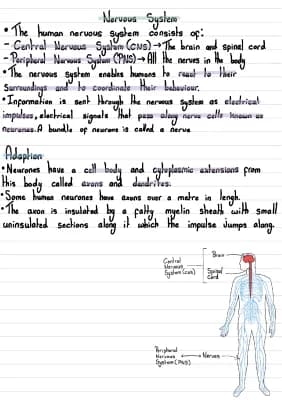 Nervous System
• The human nervous system consists of:
- Central Nervous System (CNS) → The brain and spinal cord
- Peripheral Nervous System (PNS) → All the nerves in the body
• The nervous system enables humans to react to their
surroundings and to coordinate their behaviour.
• Information is sent through the nervous system as electrical
impulses, electrical signals that pass along nerve cells known as
neurones. A bundle of neurons is called a nerve.
Adaption
• Neurones have a cell body and cytoplasmic extensions from
this body called axons and dendrites.
• Some human neurones have axons over a metre in lengh.
• The axon is insulated by a fatty myelin sheath with small
uninsulated sections along it which the impulse jumps along.
Brain
Central
Nervous
System (CNS)
Spinal
Cord
Peripheral
Nervous
System (PNS)
Nerves